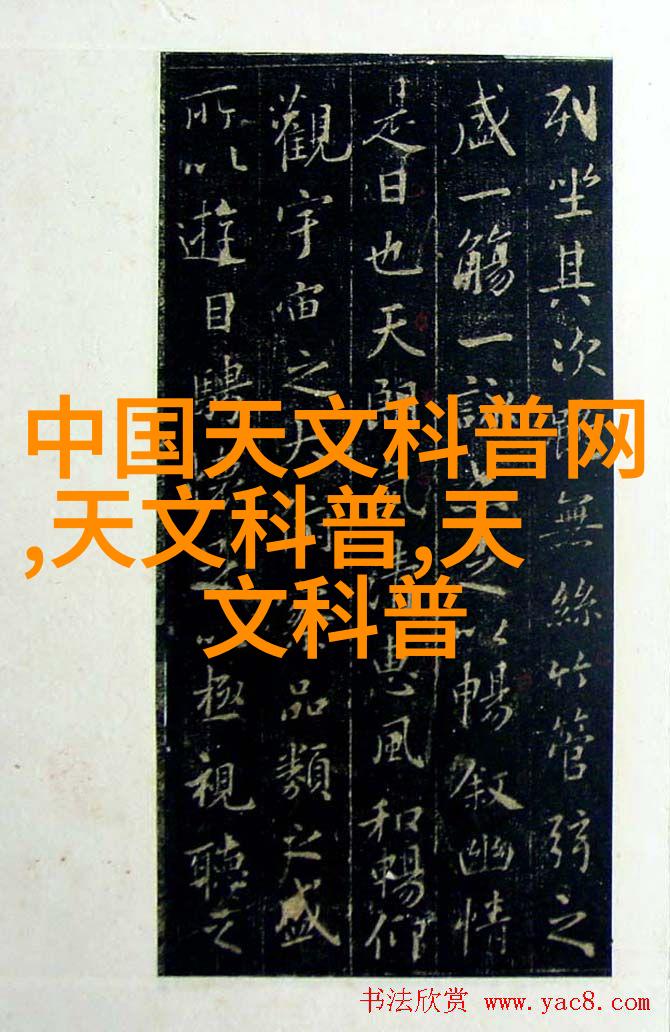 列坐其次無絲竹管弦之
盛一觴一詠以暢叙幽情
是日也天朗清惠風和暢仰
觀宇宙之大品類之盛
所以遊目騁以極視聽之
中国天文科普网
,天文科普,天
文科普
书法欣赏 www.yac8.com